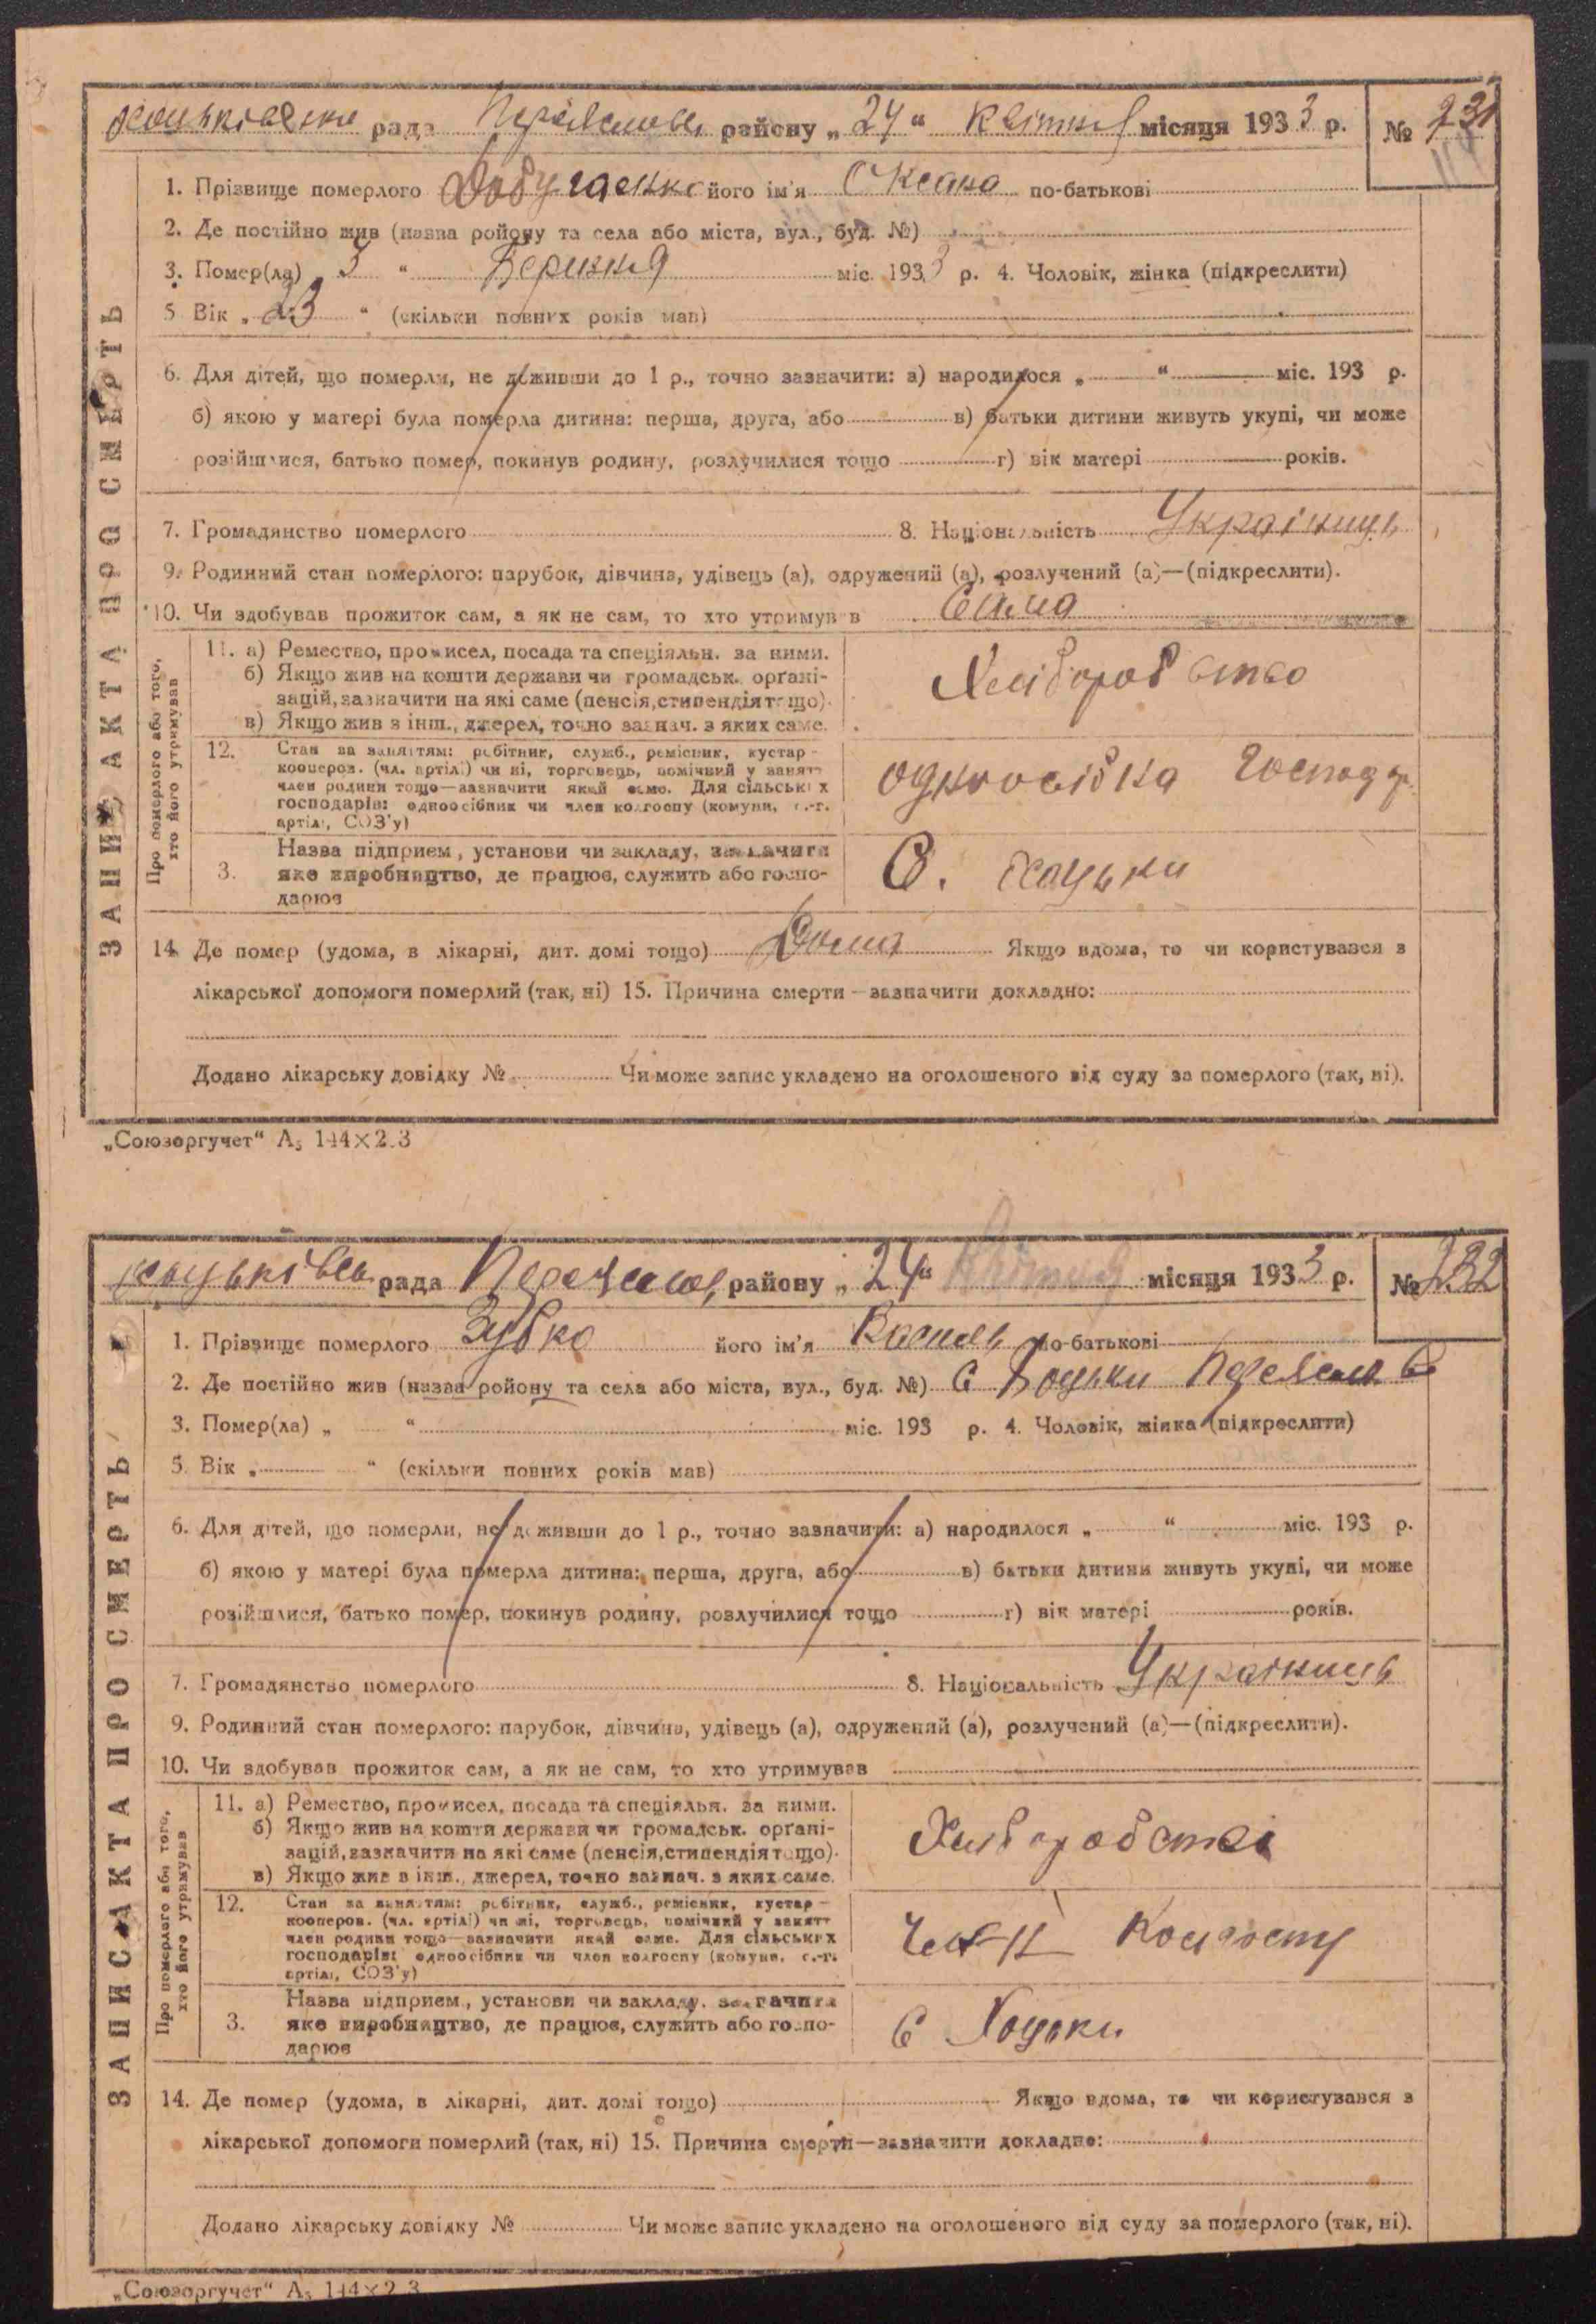 Хоцьківська рада Переяслов. району „24“ Квітня місяця 1933 р. № 231
1. Прізвище померлого його ім'я Оксана по-батькові
2. Де постійно жив (назва ройону та села або міста, вул., буд. №)
3. Помер(ла) 5 “ Березня міс. 1933 р. 4. Чоловік, жінка (підкреслити)
5 Вік „ 23 “ (скільки повних років мав)
6. Для дітей, що померли, не доживши до 1 р., точно зазначити: а) народилося „ “ міс. 193 р.
б) якою у матері була померла дитина: перша, друга, або в) батьки дитини живуть укупі, чи може
розійшлися, батько помер, покинув родину, розлучилися тощо г) вік матері років.
7. Громадянство померлого 8. Національність Українець
9. Родинний стан померлого: парубок, дівчина, удівець (а), одружений (а), розлучений (а)—(підкреслити).
10. Чи здобував прожиток сам, а як не сам, то хто утримував Сама
ЗАПИС АКТА ПРО СМЕРТЬ
Про померлого або того, хто його утримував
11. а) Ремество, промисел, посада та спеціяльн. за ними.
б) Якщо жив на кошти держави чи громадськ. органі-
зацій, зазначити на які саме (пенсія, стипендія тощо).
в) Якщо жив з інш., джерел, точно зазнач. з яких саме.
Хліборобство
12. Стан за заняттям: робітник, служб., ремісник, кустар -
кооперов. (чл. артілі) чи ні, торговець, помічний у занятт
член родини тощо—зазначити який саме. Для сільських
господарів: одноосібник чи член колгоспу (комуни, с.-г.
артілі, СОЗ'у)
одноосібна господар.
3. Назва підприєм., установи чи закладу, зазначити
яке виробництво, де працює, служить або госпо-
дарює
С. Хоцьки
14. Де помер (удома, в лікарні, дит. домі тощо) Дома Якщо вдома, то чи користувався з
лікарської допомоги померлий (так, ні) 15. Причина смерти—зазначити докладно:
Додано лікарську довідку № Чи може запис укладено на оголошеного від суду за померлого (так, ні).
„Союзоргучет“ А5 144×2.3
Хоцьківсь рада Переяслов, району „24“ Квітня місяця 1933 р. № 232
1. Прізвище померлого Зубко його ім'я Василь по-батькові
2. Де постійно жив (назва ройону та села або міста, вул., буд. №) С Хоцьки Переяслов
3. Помер(ла) „ “ міс. 193 р. 4. Чоловік, жінка (підкреслити)
5. Вік „ “ (скільки повних років мав)
6. Для дітей, що померли, не доживши до 1 р., точно зазначити: а) народилося „ “ міс. 193 р.
б) якою у матері була померла дитина: перша, друга, або в) батьки дитини живуть укупі, чи може
розійшлися, батько помер, покинув родину, розлучилися тощо г) вік матері років.
7. Громадянство померлого 8. Національність Українець
9. Родинний стан померлого: парубок, дівчина, удівець (а), одружений (а), розлучений (а)—(підкреслити).
10. Чи здобував прожиток сам, а як не сам, то хто утримував
ЗАПИС АКТА ПРО СМЕРТЬ
Про померлого або того, хто його утримував
11. а) Ремество, промисел, посада та спеціяльн. за ними.
б) Якщо жив на кошти держави чи громадськ. органі-
зацій, зазначити на які саме (пенсія, стипендія тощо).
в) Якщо жив з інш., джерел, точно зазнач. з яких саме.
Хліборобство
12. Стан за заняттям: робітник, служб., ремісник, кустар -
кооперов. (чл. артілі) чи ні, торговець, помічний у занятт
член родини тощо—зазначити який саме. Для сільських
господарів: одноосібник чи член колгоспу (комуни, с.-г.
артілі, СОЗ'у)
Член Колгоспу
3. Назва підприєм., установи чи закладу, зазначити
яке виробництво, де працює, служить або госпо-
дарює
С Хоцьки
14. Де помер (удома, в лікарні, дит. домі тощо) Якщо вдома, то чи користувався з
лікарської допомоги померлий (так, ні) 15. Причина смерти—зазначити докладно:
Додано лікарську довідку № Чи може запис укладено на оголошеного від суду за померлого (так, ні).
„Союзоргучет“ А5 144×2.3